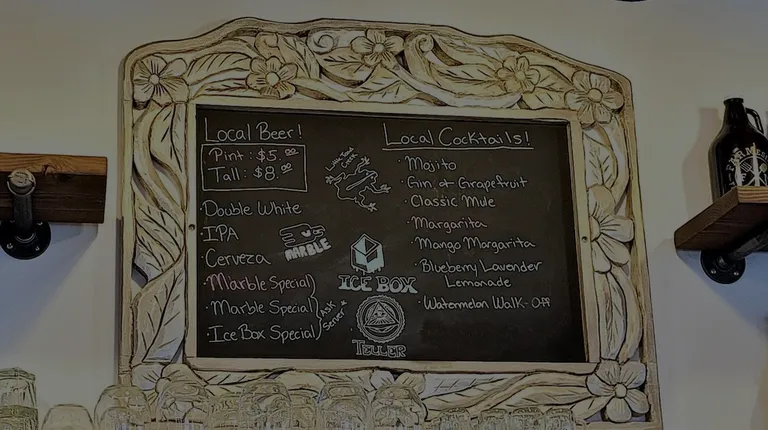 Local Beer!
Pint: $5.00
Tall: $8.00
· Double White
· IPA
· Cerveza
· Marble Special
· Marble Special
· Ice Box Special
Ask Server *
MARBLE
ICE BOX
TELLER
Local Cocktails!
· Mojito
· Gin & Grapefruit
· Classic Mule
· Margarita
· Mango Margarita
· Blueberry Lavender
Lemonade
· Watermelon Walk-Off